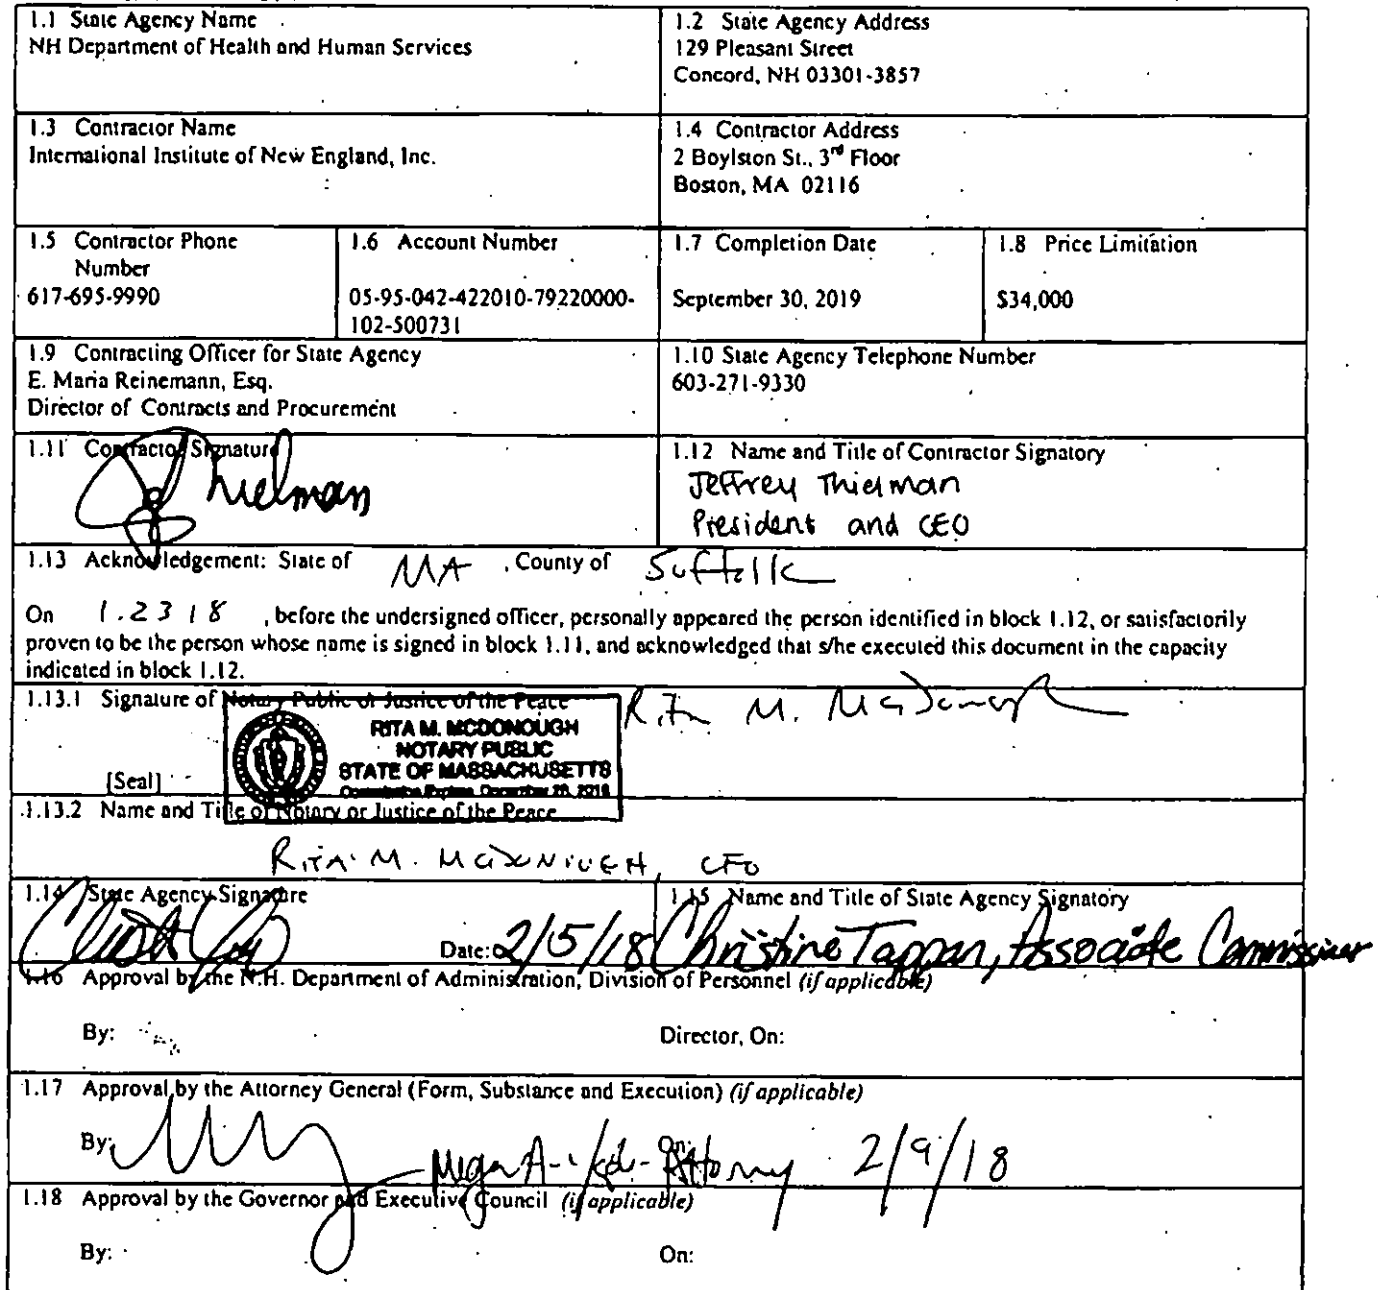 1.1 State Agency Name
NH Department of Health and Human Services
1.2 State Agency Address
129 Pleasant Street
Concord, NH 03301-3857
1.3 Contractor Name
International Institute of New England, Inc.
1.4 Contractor Address
2 Boylston St., 3rd Floor
Boston, MA 02116
1.5 Contractor Phone
Number
617-695-9990
1.6 Account Number
05-95-042-422010-79220000-
102-500731
1.7 Completion Date
September 30, 2019
1.8 Price Limitation
$34,000
1.9 Contracting Officer for State Agency
E. Maria Reinemann, Esq.
Director of Contracts and Procurement
1.10 State Agency Telephone Number
603-271-9330
1.11 Contractor Signature
J Thielman
1.12 Name and Title of Contractor Signatory
Jeffrey Thielman
President and CEO
1.13 Acknowledgement: State of MA , County of Suffolk
On 1.23 18 , before the undersigned officer, personally appeared the person identified in block 1.12, or satisfactorily
proven to be the person whose name is signed in block 1.11, and acknowledged that s/he executed this document in the capacity
indicated in block 1.12.
1.13.1 Signature of Notary Public or Justice of the Peace
Rita M. McDonough
RITA M. MCDONOUGH
NOTARY PUBLIC
STATE OF MASSACHUSETTS
Commission Expires December
[Seal]
1.13.2 Name and Title of Notary or Justice of the Peace
RITA M. MCDONOUGH, CFO
1.14 State Agency Signature
Date: 2/5/18
1.15 Name and Title of State Agency Signatory
Christine Tappan, Associate Commissioner
1.16 Approval by the N.H. Department of Administration, Division of Personnel (if applicable)
By: Director, On:
1.17 Approval by the Attorney General (Form, Substance and Execution) (if applicable)
By: Megan A - Attorney On: 2/9/18
1.18 Approval by the Governor and Executive Council (if applicable)
By: On: